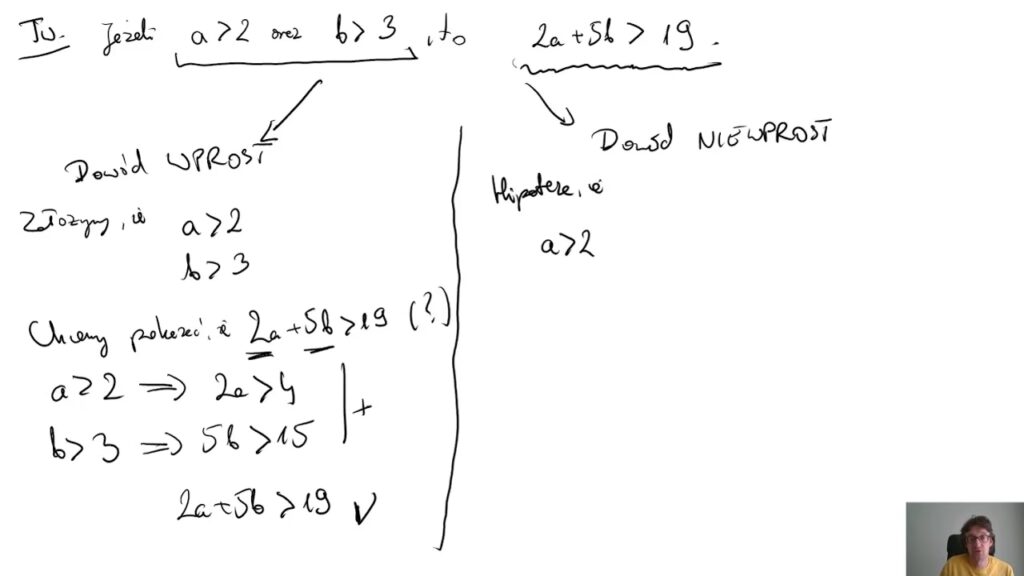 Tw. Jeżeli a>2 oraz b>3, to 2a+5b > 19.
Dowód WPROST
Załóżmy, że a>2
b>3
Chcemy pokazać, że 2a+5b>19 (?)
a>2 => 2a>4
b>3 => 5b>15
+
2a+5b>19 V
Dowód NIEWPROST
Hipoteza, że
a>2